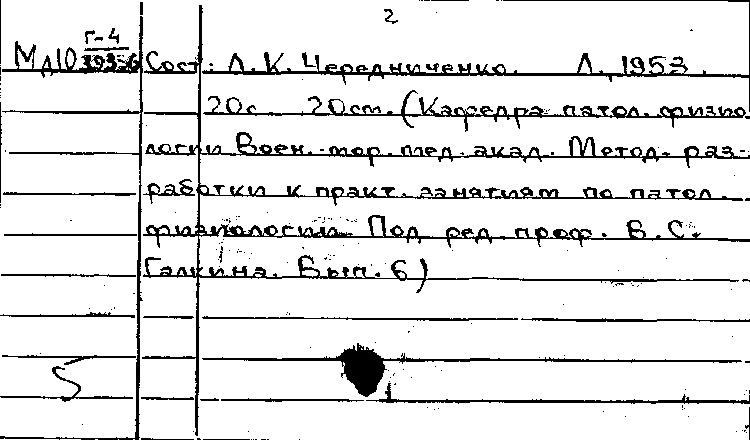 2
Г-4
МД10 39336 Сост: Л. К. Чередниченко. Л., 1953.
20с. 20см. (Кафедра патол. физио
логии Воен.-мор. мед. акад. Метод. раз-
работки к практ. занятиям по патол.
физиологии. Под ред. проф. В. С.
Галкина. Вып. 6)
5